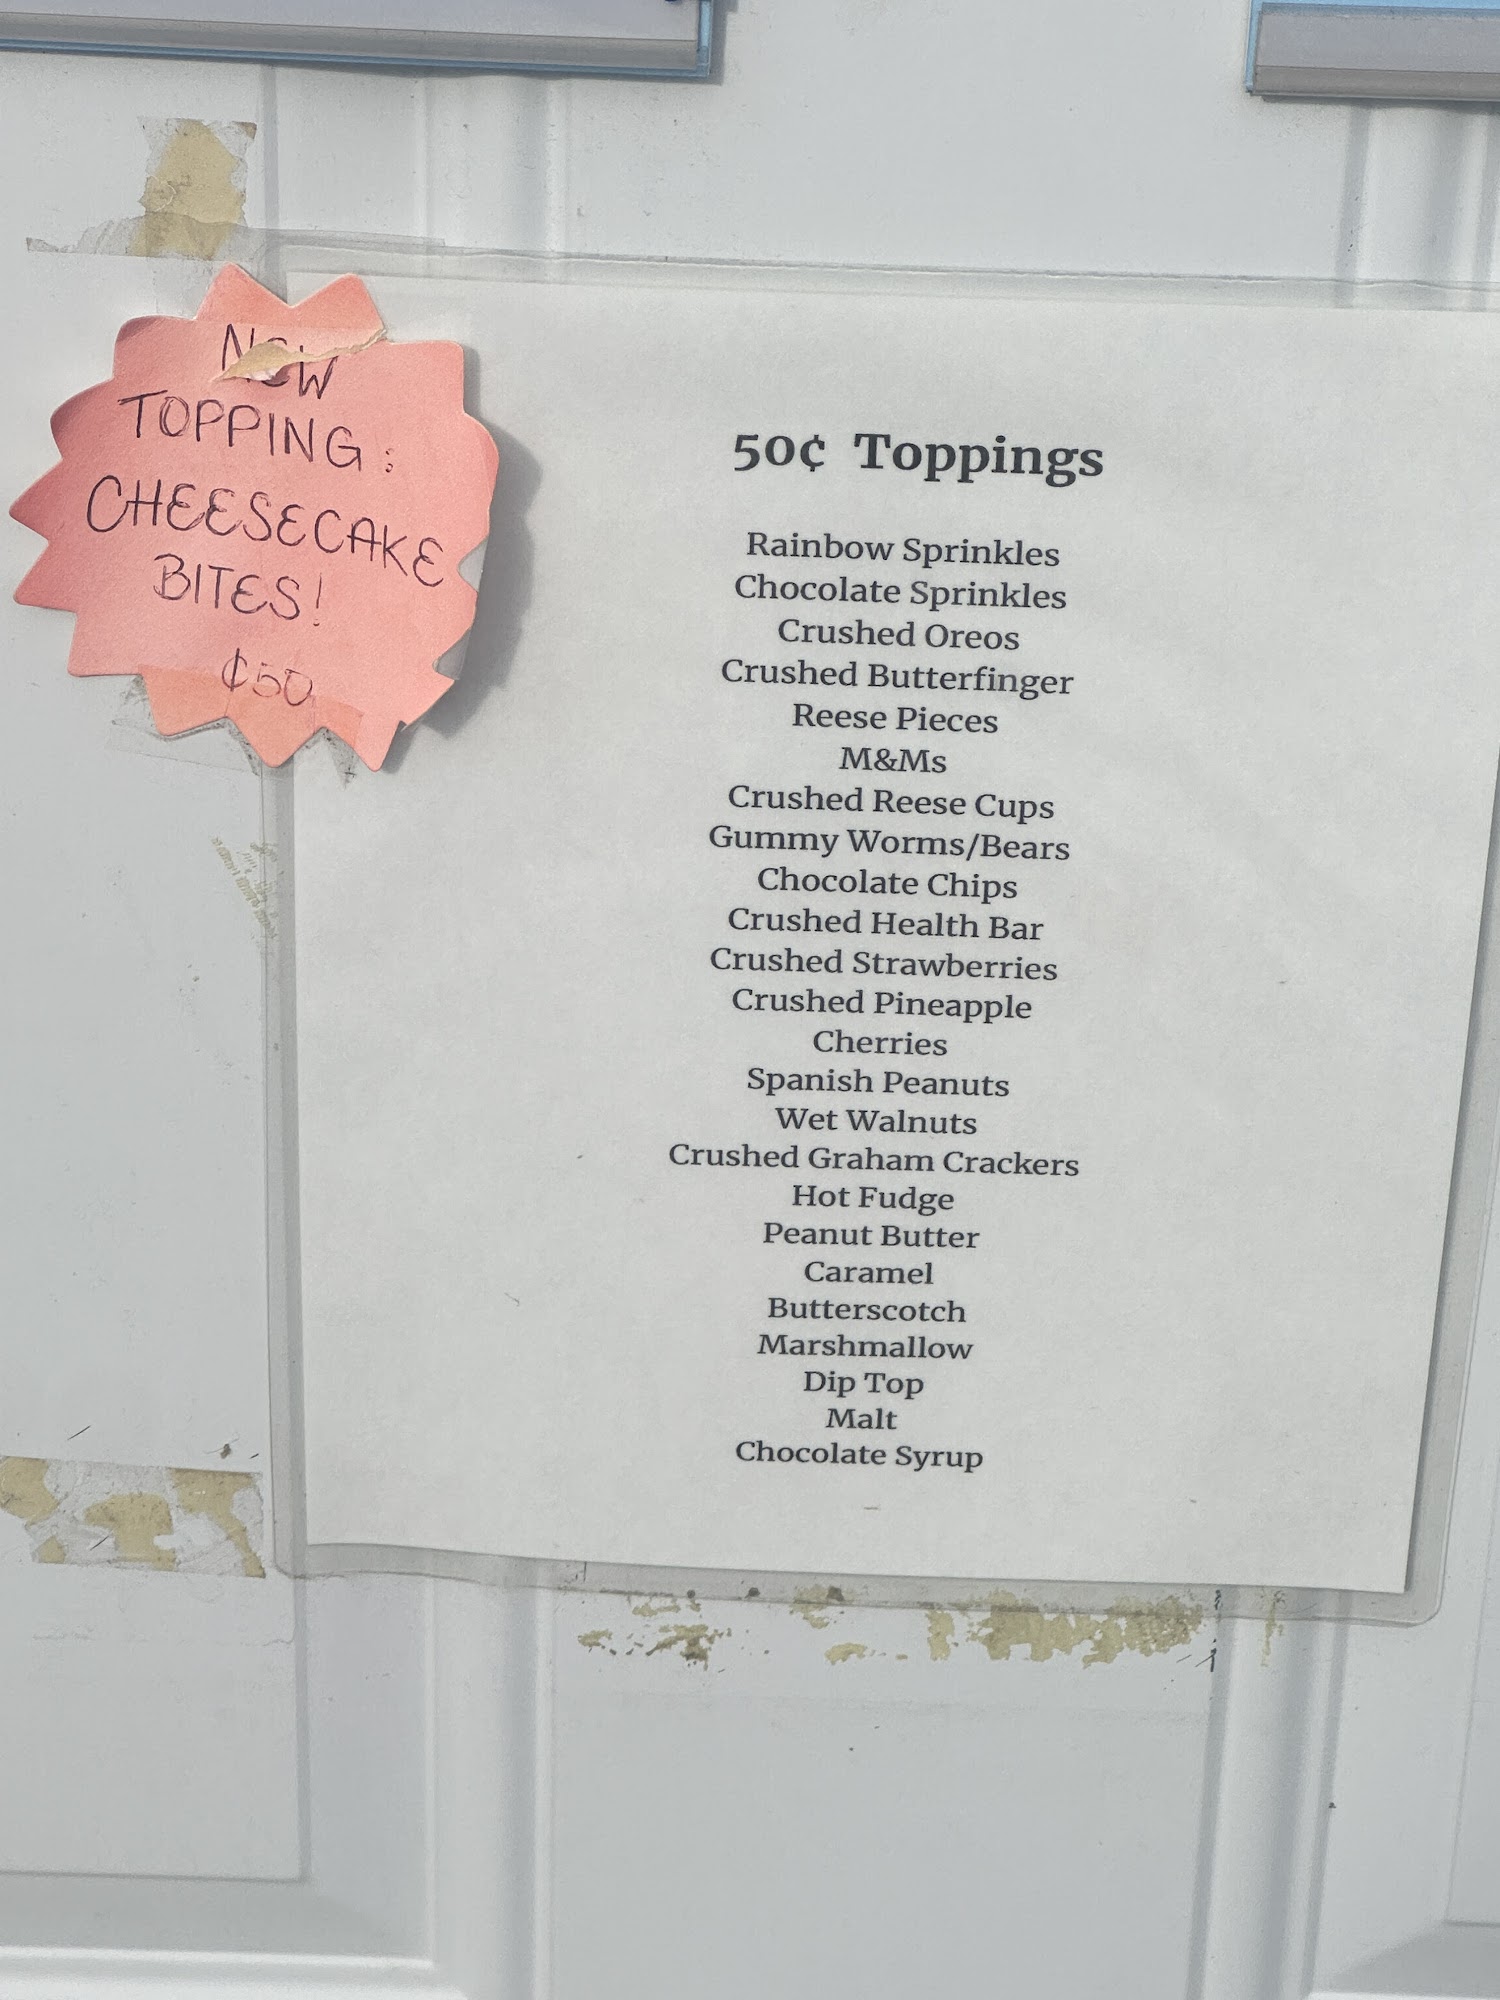 NEW
TOPPING:
CHEESECAKE
BITES!
¢50
50¢ Toppings
Rainbow Sprinkles
Chocolate Sprinkles
Crushed Oreos
Crushed Butterfinger
Reese Pieces
M&Ms
Crushed Reese Cups
Gummy Worms/Bears
Chocolate Chips
Crushed Health Bar
Crushed Strawberries
Crushed Pineapple
Cherries
Spanish Peanuts
Wet Walnuts
Crushed Graham Crackers
Hot Fudge
Peanut Butter
Caramel
Butterscotch
Marshmallow
Dip Top
Malt
Chocolate Syrup